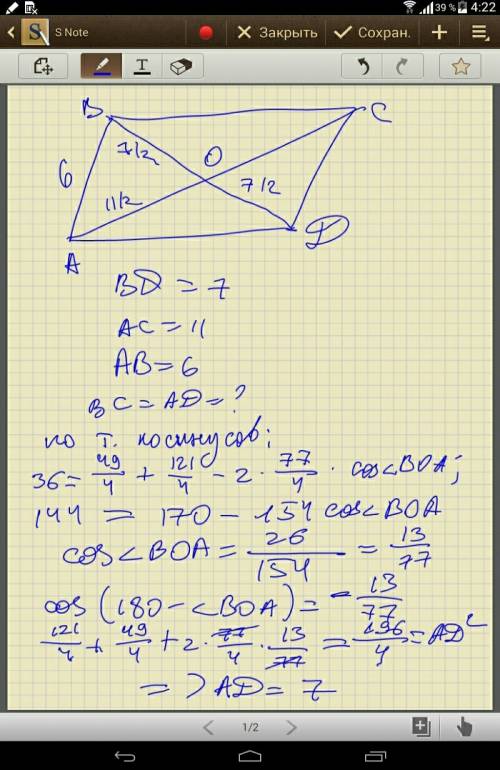 39 % 4:22
S Note Закрыть Сохран.
T
B C
7/2 O
6 11/2 7/2
A D
BD = 7
AC = 11
AB = 6
BC = AD = ?
по т. косинусов;
36 = 49/4 + 121/4 - 2 · 77/4 · cos∠BOA;
144 = 170 - 154 cos∠BOA
cos∠BOA = 26/154 = 13/77
cos(180 - ∠BOA) = -13/77
121/4 + 49/4 + 2 · 77/4 · 13/77 = 196/4 = AD²
=> AD = 7
1/2